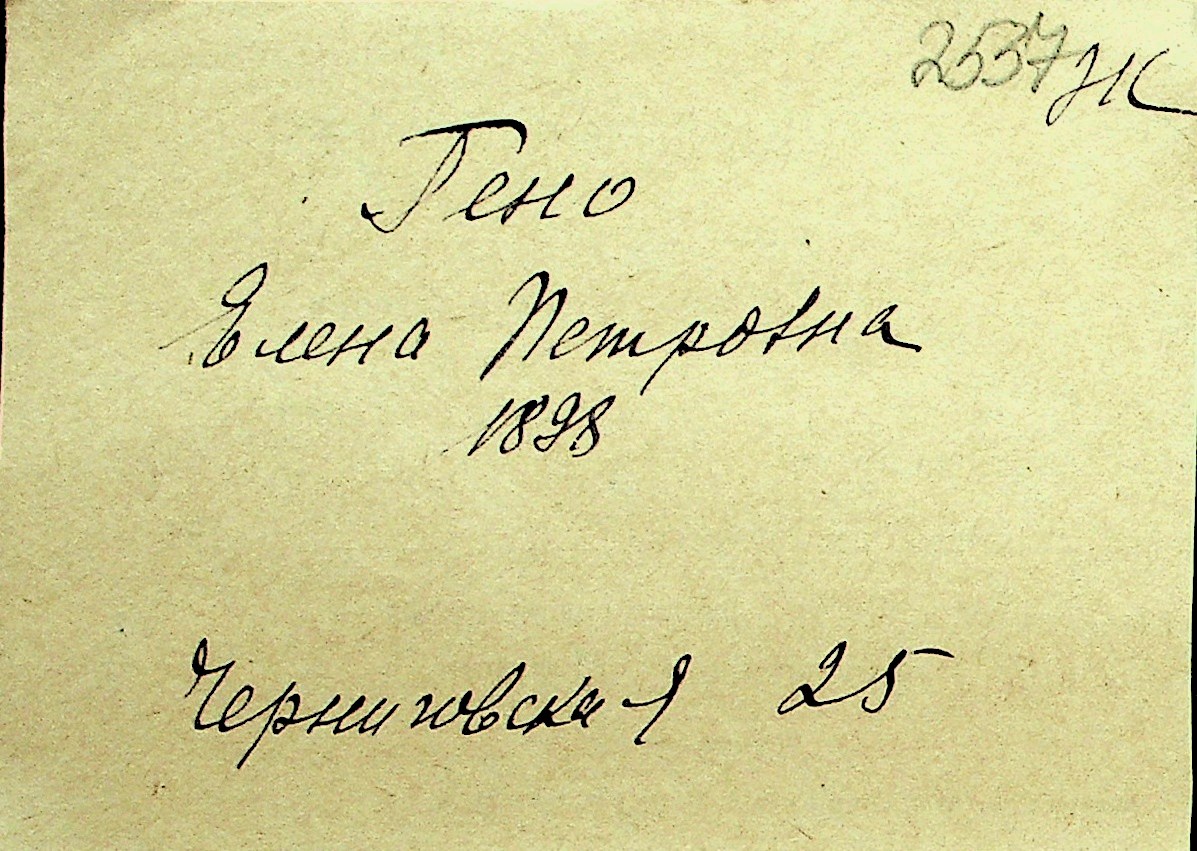 2537 Ж
Гено
Елена Петровна
1898
Черниговская 25